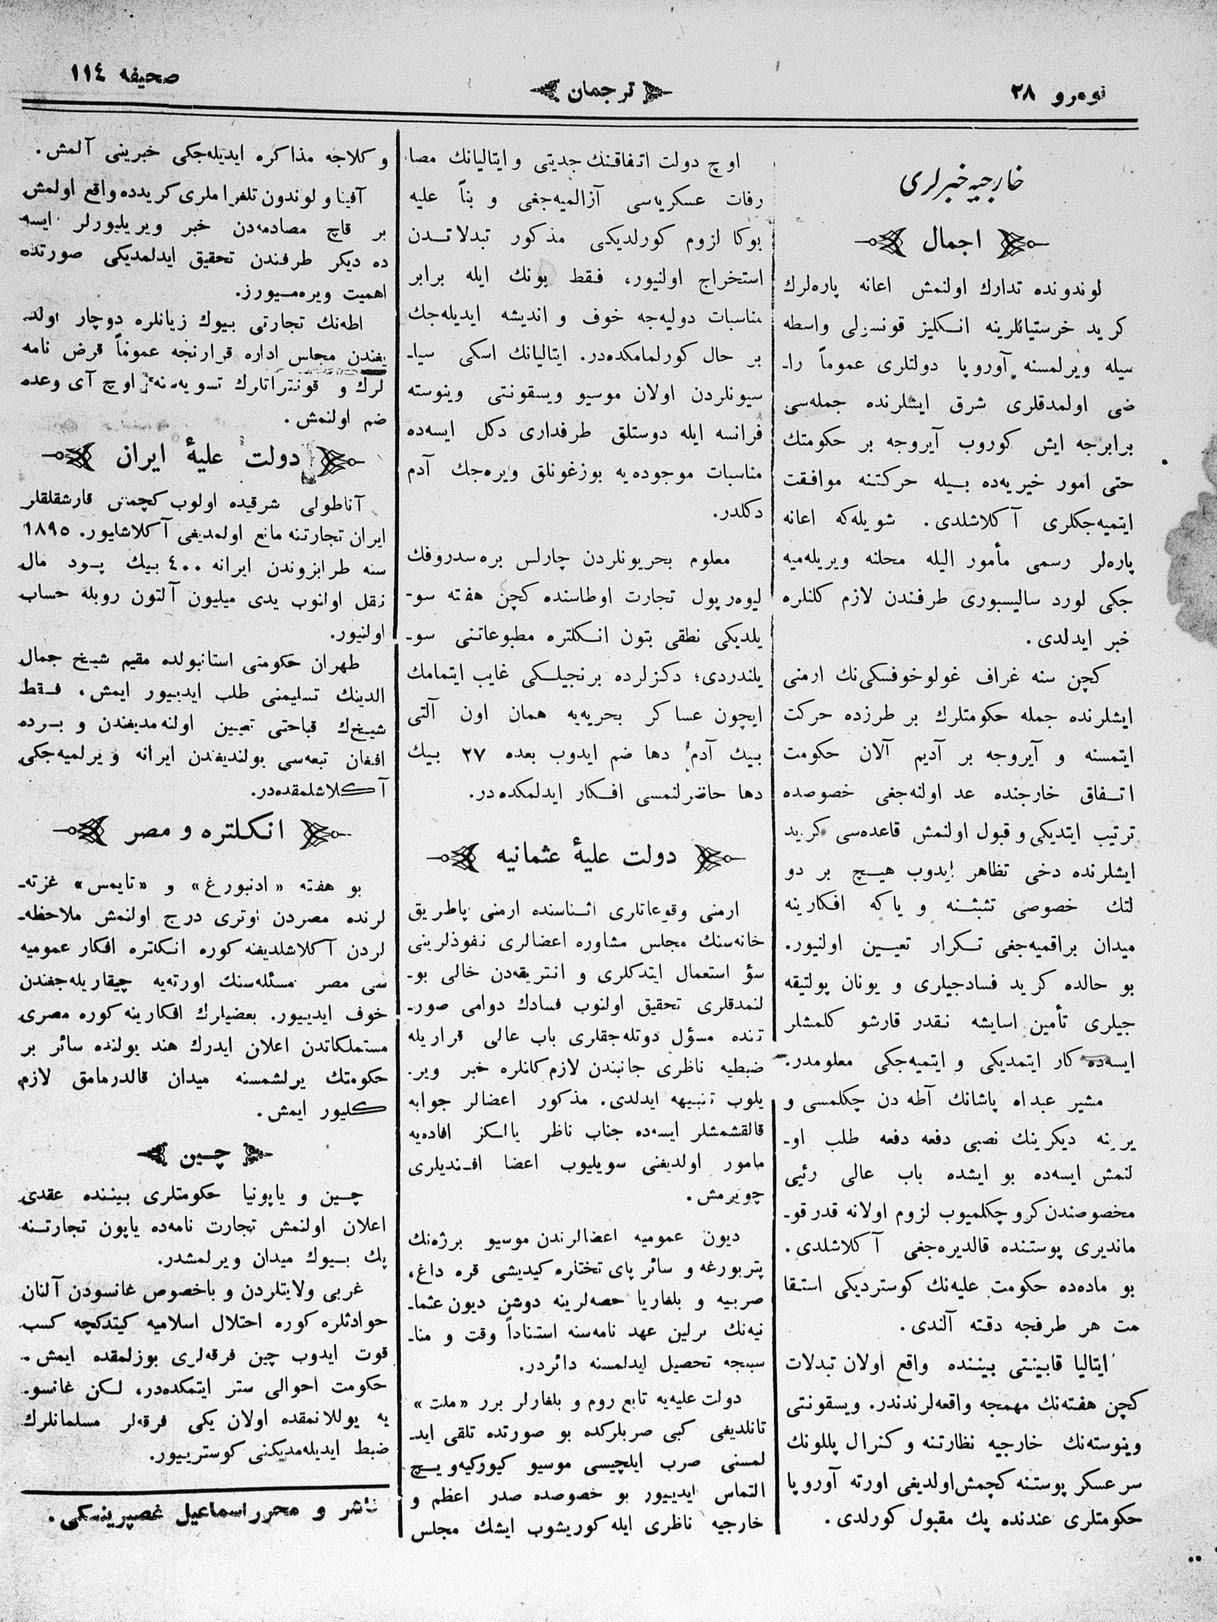 نومرو ٢٨
ترجمان
صحيفه ١١٤
خارجيه خبرلرى
اجمال
لوندونده تدارك اولنمش اعانه پاره‌لرك
كريد خرستيانلرينه انكليز قونسولى واسطه
سيله ويرلمسنه آوروپا دولتلرى عموماً را-
ضى اولمدقلرى شرق ايشلرنده جمله‌سى
برابرجه ايش كوروب آيروجه بر حكومتك
حتى امور خيريه‌ده بيله حركتنه موافقت
ايتميه‌جكلرى آكلاشلدى. شويله‌كه اعانه
پاره‌لر رسمى مأمور اليله محلنه ويريله‌ميه
جكى لورد ساليسبورى طرفندن لازم كلنلره
خبر ايدلدى.
كچن سنه غراف غولوخوفسكى‌نك ارمنى
ايشلرنده جمله حكومتلرك بر طرزده حركت
ايتمسنه و آيروجه بر آديم آلان حكومت
اتفاق خارجنده عد اولنه‌جغى خصوصده
ترتيب ايتديكى و قبول اولنمش قاعده‌سى كريد
ايشلرنده دخى تظاهر ايدوب هيچ بر دو
لتك خصوصى تشبثنه و ياكه افكارينه
ميدان براقميه‌جغى تكرار تعيين اولنيور.
بو حالده كريد فسادجيلرى و يونان پولتيقه
جيلرى تأمين اسايشه نقدر قارشو كلمشلر
ايسه‌ده كار ايتمديكى و ايتميه‌جكى معلومدر.
مشير عبداه پاشانك آطه دن چكلمسى و
يرينه ديكرينك نصبى دفعه دفعه طلب او-
لنمش ايسه‌ده بو ايشده باب عالى رئيى
مخصوصندن كرو چكلميوب لزوم اولانه قدر قو-
ماندیری پوستنده قالديره‌جغى آكلاشلدى.
بو ماده‌ده حكومت عليه‌نك كوستردیكى استقا
مت هر طرفجه دقته آلندى.
ايتاليا قابينتى بيننده واقع اولان تبدلات
كچن هفته‌نك مهمجه واقعه‌لرندندر. ويسقونتى
وينوسته‌نك خارجيه نظارتنه و كنرال پللونك
سر عسكر پوستنه كچمش اولديغى اورته آوروپا
حكومتلرى عندنده پك مقبول كورلدى.
اوچ دولت اتفاقنك جديتى و ايتاليانك مصا
رفات عسكريه‌سى آزالميه‌جغى و بنأ عليه
بوكا لزوم كورلديكى مذكور تبدلاتدن
استخراج اولنيور، فقط بونك ايله برابر
مناسبات دوليه‌جه خوف و انديشه ايديله‌جك
بر حال كورلمامكده‌در. ايتاليانك اسكى سيا-
سيونلردن اولان موسيو ويسقونتى وينوسته
فرانسه ايله دوستلق طرفدارى دكل ايسه‌ده
مناسبات موجوده‌يه بوزغونلق ويره‌جك آدم
دكلدر.
معلوم بحريونلردن چارلس بره‌سدروفك
ليوه‌رپول تجارت اوطاسنده كچن هفته سو-
يلديكى نطقى بتون انكلتره مطبوعاتنى سو-
يلندردى؛ دكزلرده برنجيلكى غايب ايتمامك
ايچون عساكر بحريه‌يه همان اون آلتى
بيك آدم دها ضم ايدوب بعده ٢٧ بيك
دها حاضرلنمسى افكار ايدلمكده‌در.
دولت عليهٔ عثمانيه
ارمنى وقوعاتلرى اثناسنده ارمنى پاطريق
خانه‌سنك مجلس مشاوره اعضالرى نفوذلرينى
سؤ استعمال ايتدكلرى و انتريقه‌دن خالى بو-
لنمدقلرى تحقيق اولنوب فسادك دوامى صور-
تنده مسؤل دوتله‌جقلرى باب عالى قراريله
ضبطيه ناظرى جانبندن لازم كلنلره خبر وير-
يلوب تنبيهه ايدلدى. مذكور اعضالر جوابه
قالقشمشلر ايسه‌ده جناب ناظر يالكز افاده‌يه
مامور اولديغنى سويليوب اعضا افنديلرى
چويرمش.
ديون عموميه اعضالرندن موسيو برژه‌نك
پتربورغه و سائر پاى تختلره كيديشى قره داغ،
صربيه و بلغاريا حصه‌لرينه دوشن ديون عثما-
نيه‌نك برلين عهد نامه‌سنه استناداً وقت و منا-
سبجه تحصيل ايدلمسنه دائردر.
دولت عليه‌يه تابع روم و بلغارلر برر «ملت»
تانلديغى كبى صربلركده بو صورتده تلقى ايد-
لمسنى صرب ايلچيسى موسيو كيوركيه‌ويچ
التماس ايديور بو خصوصده صدر اعظم و
خارجيه ناظرى ايله كوريشوب ايشك مجلس
وكلاجه مذاكره ايديله‌جكى خبرينى آلمش.
آفينا و لوندون تلغراملرى كريدده واقع اولمش
بر قاچ مصادمه‌دن خبر ويريليورلر ايسه
ده ديكر طرفندن تحقيق ايدلمديكى صورتده
اهميت ويره‌ميورز.
اطه‌نك تجارتى بيوك زيانلره دوچار اولد
يغندن مجلس اداره قرارنجه عموماً قرض نامه
لرك و قونتراتلرك تسويه‌سنه اوچ آى وعده
ضم اولنمش.
دولت عليهٔ ايران
آناطولى شرقيده اولوب كچمش قارشقلقلر
ايران تجارتنه مانع اولمديغى آكلاشليور. ١٨٩٥
سنه طرابزوندن ايرانه ٤٠٠ بيك پود مال
نقل اولنوب يدى ميليون آلتون روبله حساب
اولنيور.
طهران حكومتى استانبولده مقيم شيخ جمال
الدينك تسليمنى طلب ايديور ايمش، فقط
شيخك قباحتى تعيين اولنه‌مديغندن و برده
افغان تبعه‌سى بولنديغندن ايرانه ويرلميه‌جكى
آكلاشلمقده‌در.
انكلتره و مصر
بو هفته «ادنبورغ» و «تايمس» غزته-
لرنده مصردن اوترى درج اولنمش ملاحظه-
لردن آكلاشلديغنه كوره انكلتره افكار عموميه
سى مصر مسئله‌سنك اورته‌يه چيقاريله‌جغندن
خوف ايديور. بعضيلرك افكارينه كوره مصرى
مستملكاتدن اعلان ايدرك هند بولنده سائر بر
حكومتك يرلشمسنه ميدان قالدرمامق لازم
كليور ايمش.
چين
چين و ياپونيا حكومتلرى بيننده عقدى
اعلان اولنمش تجارت نامه‌ده ياپون تجارتنه
پك بيوك ميدان ويرلمشدر.
غربى ولايتلردن و باخصوص غانسودن آلنان
حوادثلره كوره احتلال اسلاميه كيتدكچه كسب
قوت ايدوب چين فرقه‌لرى بوزلمقده ايمش.
حكومت احوالى ستر ايتمكده‌در، لكن غانسو-
يه يوللانمقده اولان يكى فرقه‌لر مسلمانلرك
ضبط ايديله‌مديكنى كوستريور.
ناشر و محرر اسماعيل غصپرينسكى.